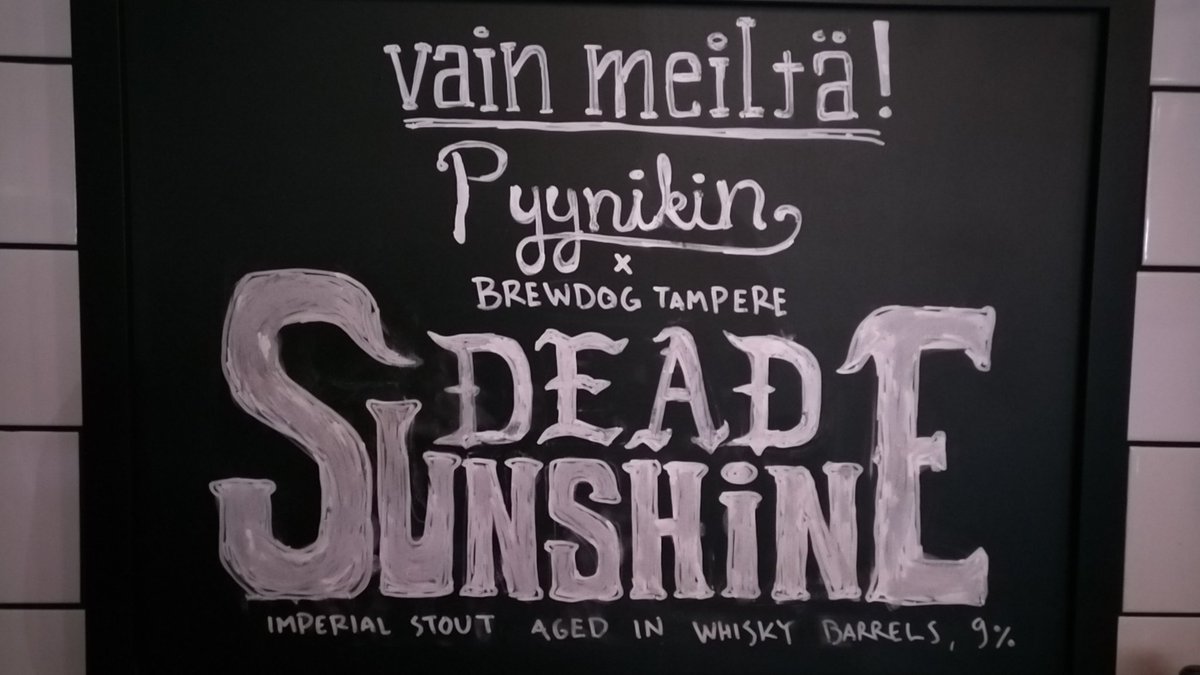 vain meiltä!
Pyynikin
x
BREWDOG TAMPERE
DEAD
SUNSHiNE
IMPERIAL STOUT AGED IN WHISKY BARRELS, 9%